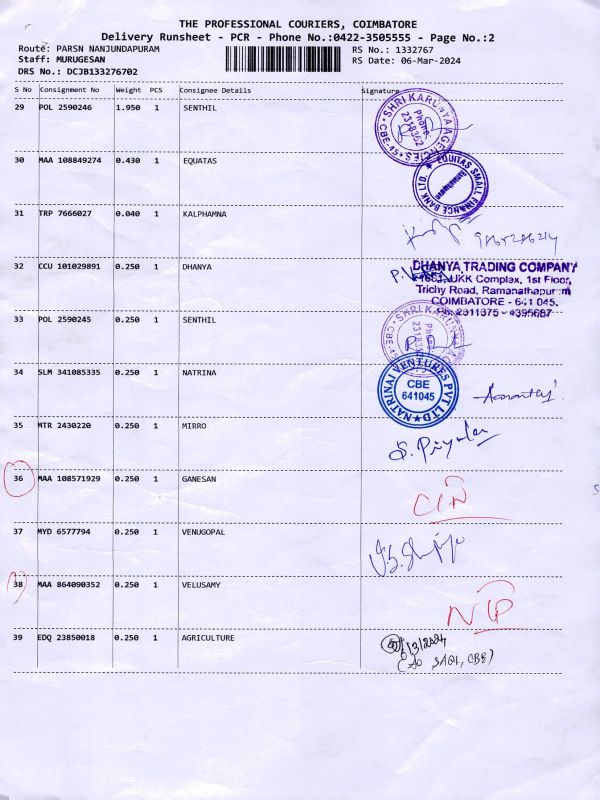 THE PROFESSIONAL COURIERS, COIMBATORE
Delivery Runsheet - PCR - Phone No.:0422-3505555 - Page No.:2
Route: PARSN NANJUNDAPURAM RS No.: 1332767
Staff: MURUGESAN RS Date: 06-Mar-2024
DRS No.: DCJB133276702
S No Consignment No Weight PCS Consignee Details Signature
29 POL 2590246 1.950 1 SENTHIL
SHRI KARUNYA AGENCIES CBE-45 Phone 2318362
30 MAA 108849274 0.430 1 EQUATAS
EQUITAS SMALL FINANCE BANK LTD.
31 TRP 7666027 0.040 1 KALPHAMNA
32 CCU 101029891 0.250 1 DHANYA
DHANYA TRADING COMPANY
UKK Complex, 1st Floor,
Trichy Road, Ramanathapuram
COIMBATORE - 641 045.
Ph: 2311375 - 4395687
33 POL 2590245 0.250 1 SENTHIL
SHRI KARUNYA Phone
34 SLM 341085335 0.250 1 NATRINA
NATRINAI VENTURES PVT LTD
CBE
641045
35 MTR 2430220 0.250 1 MIRRO
36 MAA 108571929 0.250 1 GANESAN
37 MYD 6577794 0.250 1 VENUGOPAL
38 MAA 864090352 0.250 1 VELUSAMY
39 EDQ 23850018 0.250 1 AGRICULTURE
6/3/2024